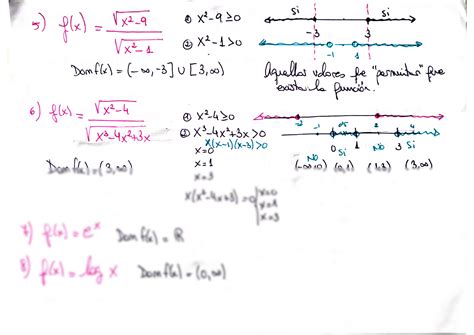 5) f(x) = √(x²-9) / √(x²-1)
① x²-9≥0
② x²-1>0
Si Si
-3 3
-1 1
Domf(x) = (-∞,-3] ∪ [3,∞)
Aquellos valores que "permiten" que
exista la función.
6) f(x) = √(x²-4) / √(x³-4x²+3x)
① x²-4≥0
② x³-4x²+3x>0
x(x-1)(x-3)>0
x=0
x=1
x=3
x(x²-4x+3)=0 x=0 x=1 x=3
-2 2
-1 0 1 2 3 4
No Si No Si
(-∞,0) (0,1) (1,3) (3,∞)
Domf(x) = (3,∞)
7) f(x) = eˣ Domf(x) = ℝ
8) f(x) = log x Domf(x) = (0,∞)